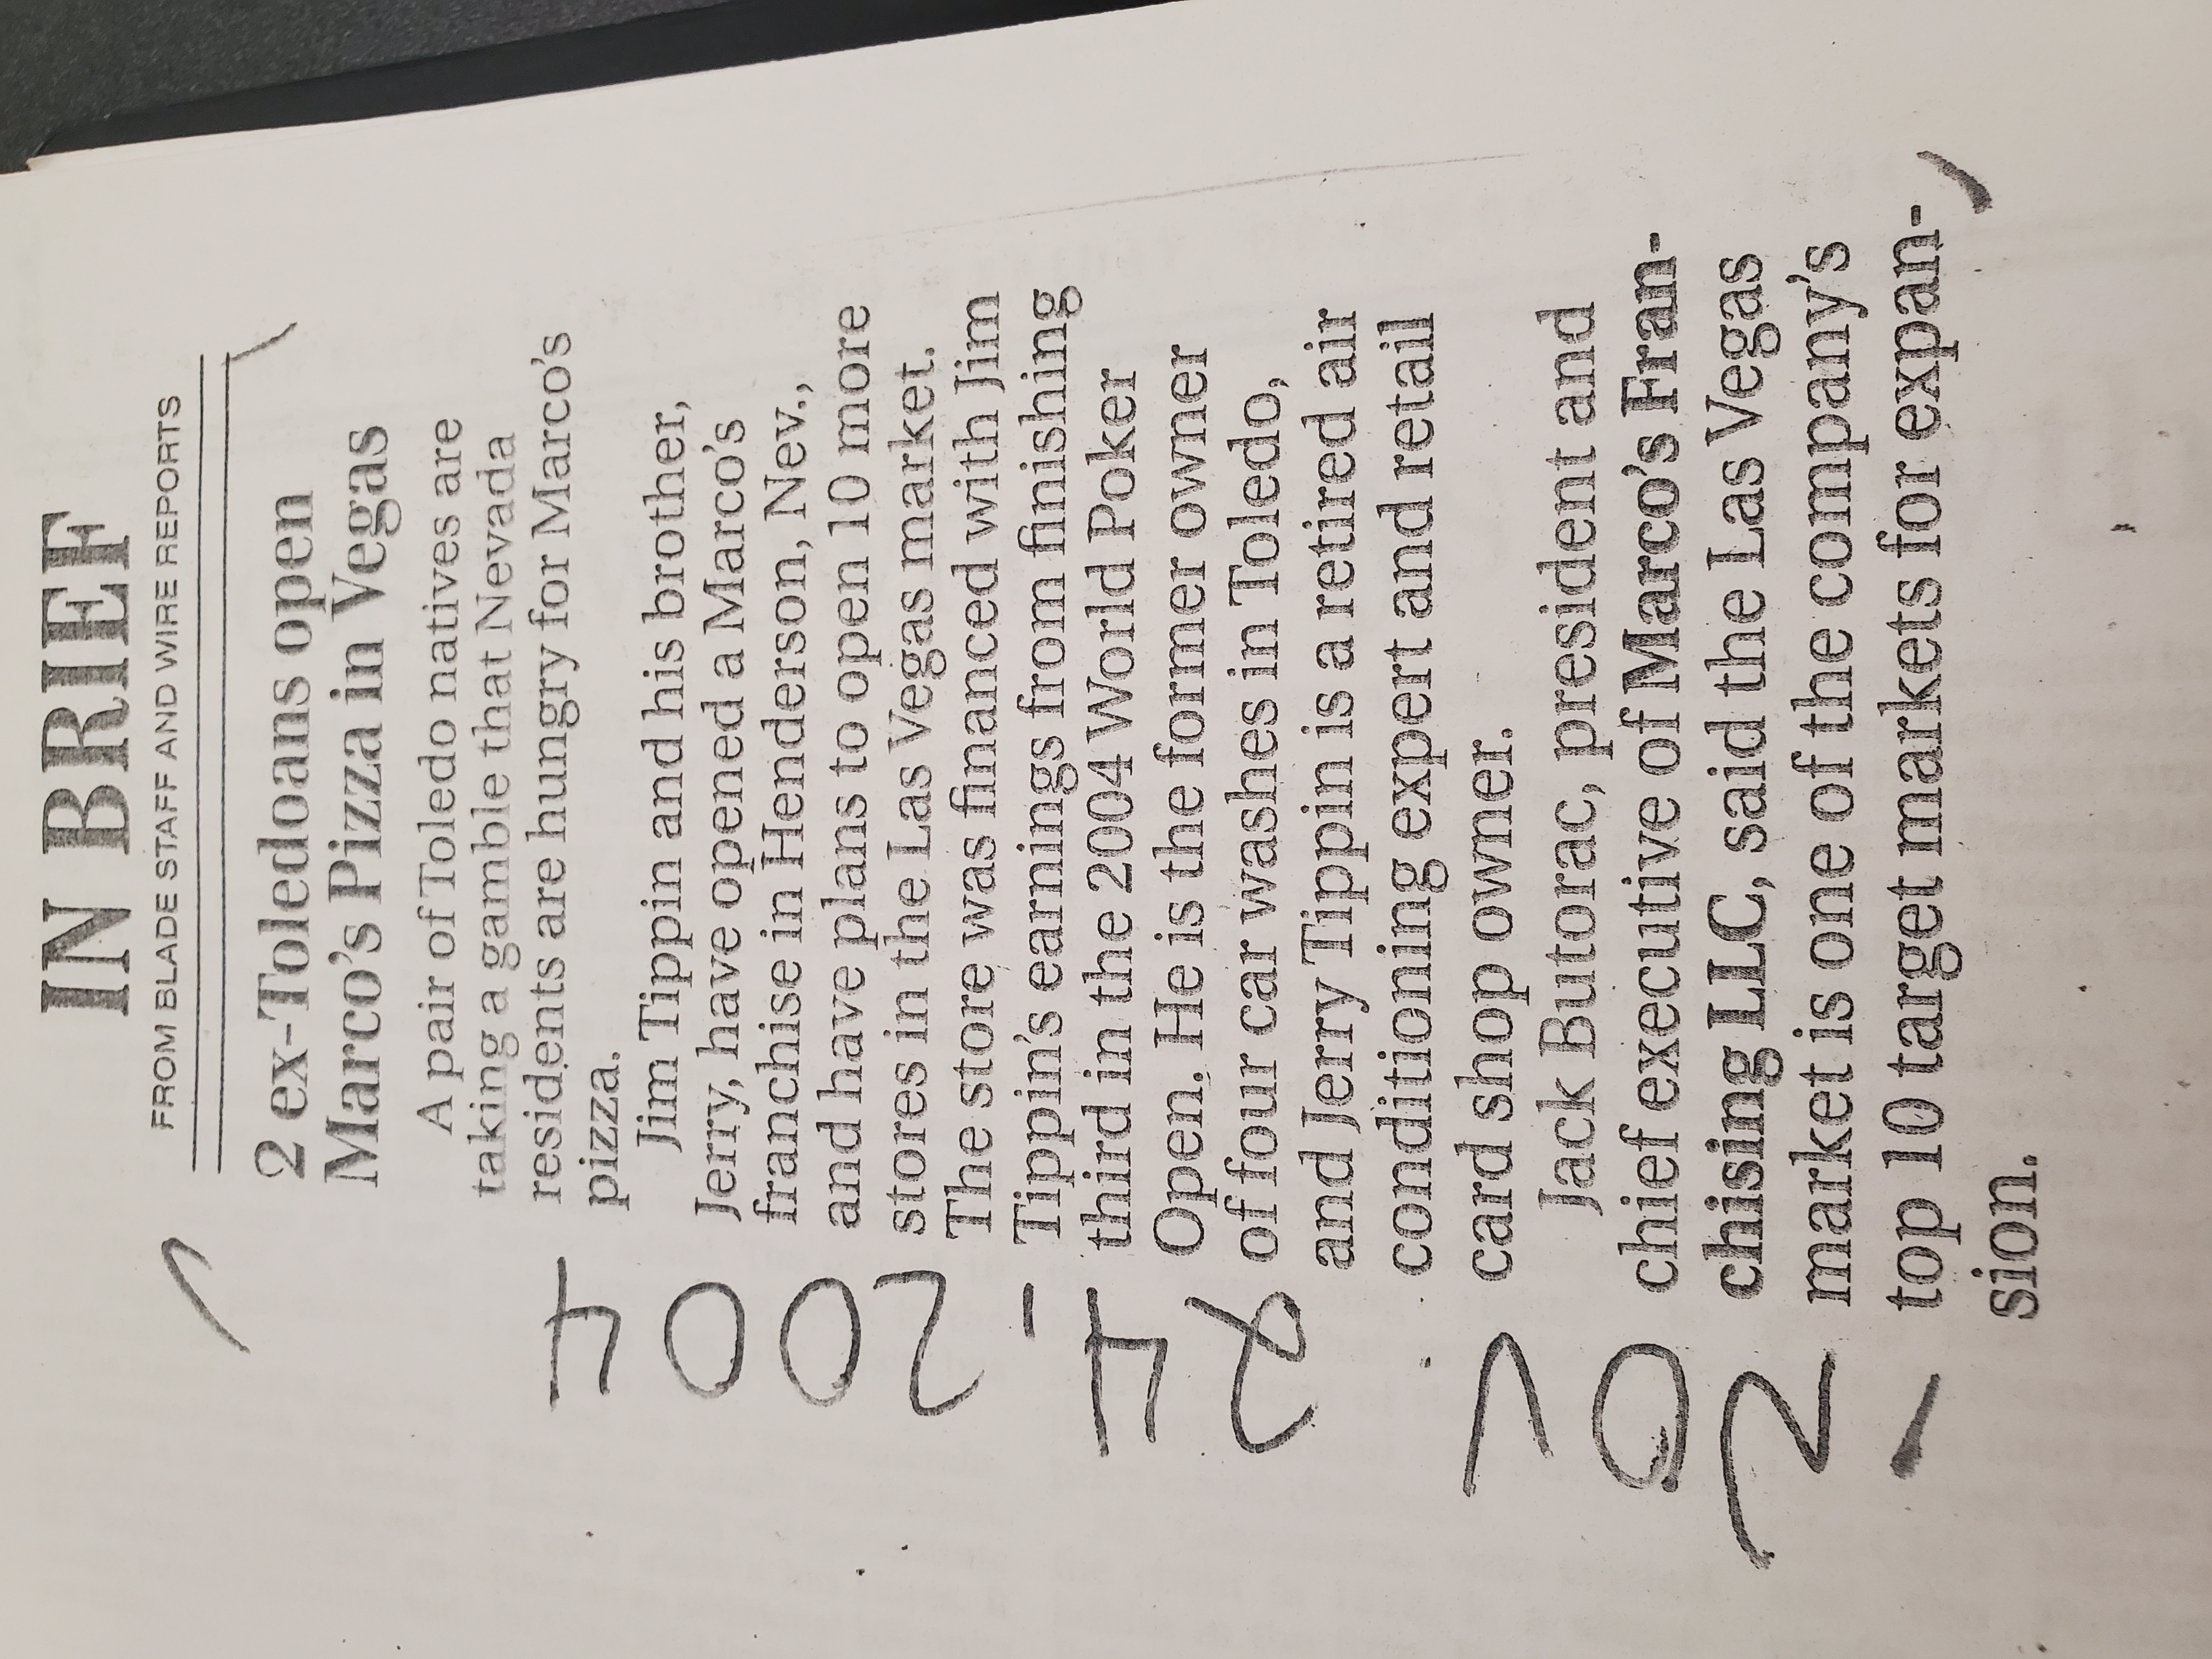 IN BRIEF
FROM BLADE STAFF AND WIRE REPORTS
2 ex-Toledoans open
Marco's Pizza in Vegas
A pair of Toledo natives are
taking a gamble that Nevada
residents are hungry for Marco's
pizza.
Jim Tippin and his brother,
Jerry, have opened a Marco's
franchise in Henderson, Nev.,
and have plans to open 10 more
stores in the Las Vegas market.
The store was financed with Jim
Tippin's earnings from finishing
third in the 2004 World Poker
Open. He is the former owner
of four car washes in Toledo,
and Jerry Tippin is a retired air
conditioning expert and retail
card shop owner.
Jack Butorac, president and
chief executive of Marco's Fran-
chising LLC, said the Las Vegas
market is one of the company's
top 10 target markets for expan-
sion.